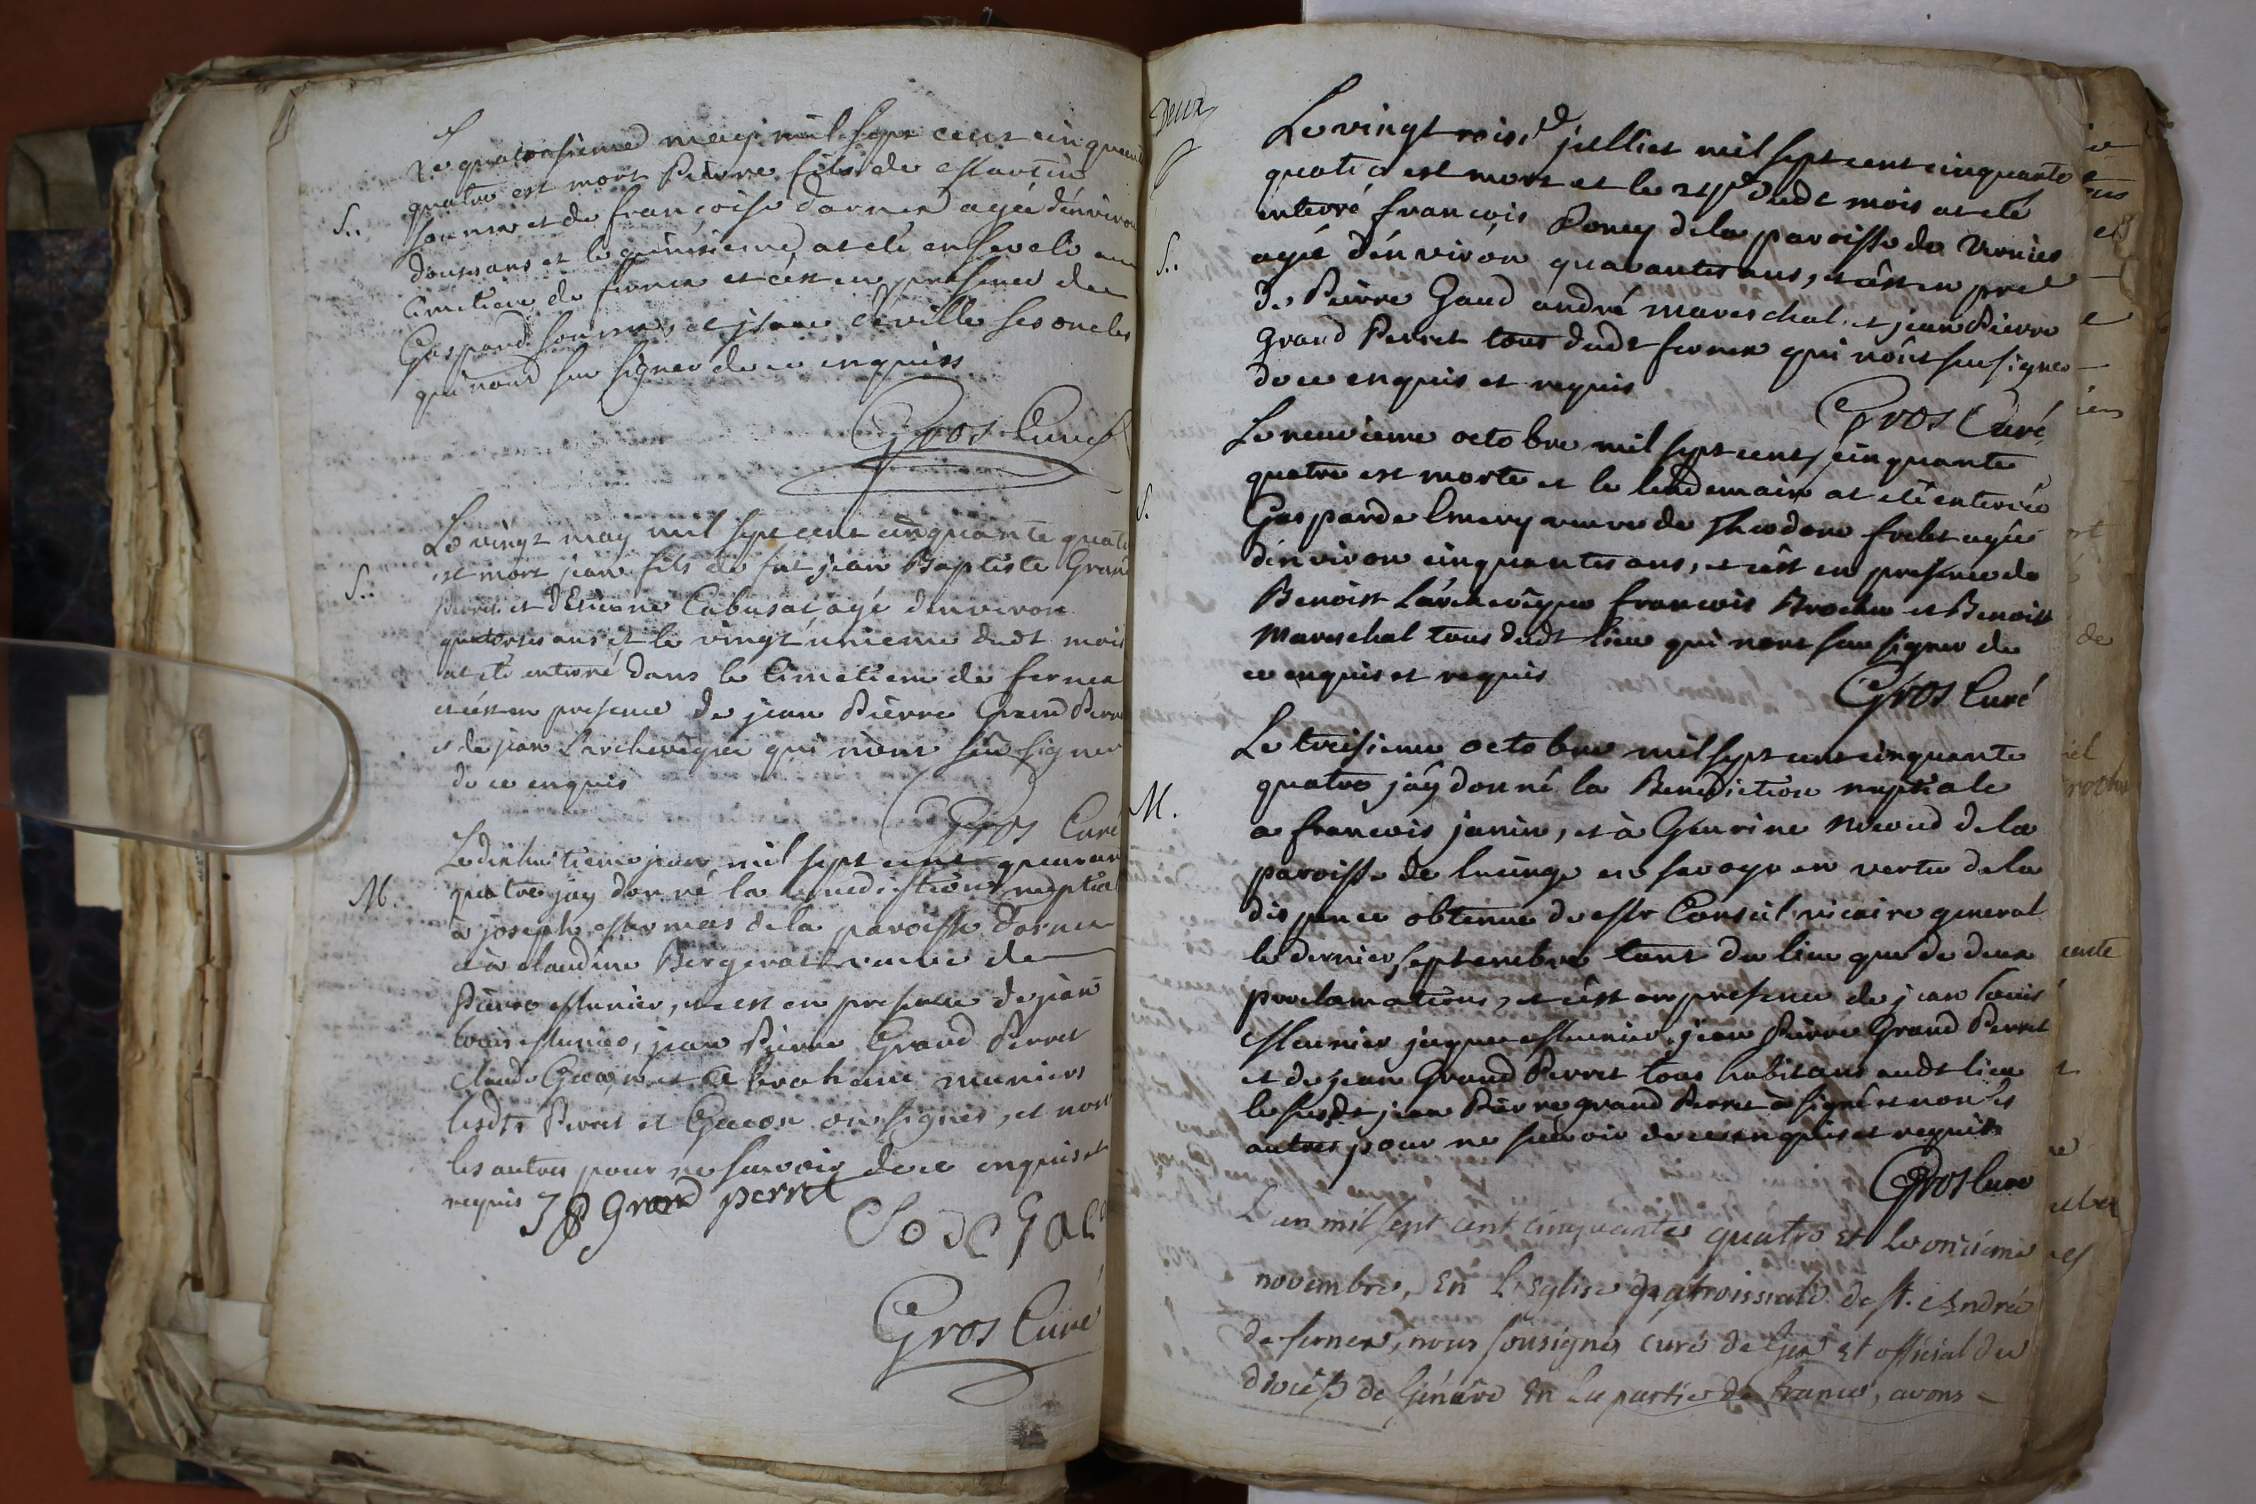 Le quatorsieme may mil sept cent cinquante
quatre est mort Pierre fils de Martin
et de françoise dornex agé d'environ
S..
douse ans et le quinsieme at eté enseveli au
Cimetiere de fernex et c'est en presence de
Gaspard et deville ses oncles
qui n'ont sçu signer de ce enquis
Gros Curé
Le vingt may mil sept cent cinquante quatre
est mort jean fils de fut jean Baptiste Grand
S..
perret et d'Etienne Cabusat agé d'environ
quatorses ans et le vingt unieme dudt mois
at eté enterré dans le Cimetiere de fernex
et c'est en presence de jean Pierre Grand Perret
et de jean Larchevêque qui n'ont sçu signer
de ce enquis
Gros Curé
Le dixhuitieme juin mil sept cent
quatre jay donné la benediction nuptial
M.
à joseph de la paroisse dornex
et à claudine Bergerat veuve de
Pierre Munier, et c'est en presence de jean
louis Munier, jean Pierre Grand Perret
Claude Gacon et Abraham muniers
lesdts Perret et Gacon ont signés, et non
les autres pour ne sçavoir de ce enquis et
requis JP Grand perret
Gros Curé
Deux
Le vingt trois.e julliet mil sept cent cinquante
quatre est mort et le dudt mois at eté
enterré françois Poncy de la paroisse de Vernier
S..
agé d'environ quarantes ans, et c'est en pre
de Pierre Gaud andré mareschal et jean Pierre
Grand Perret tous dudt fernex qui n'ont sçu signer
de ce enquis et requis
Gros Curé
Le neuvieme octobre mil sept cent cinquante
quatre est morte et le lendemain at eté enterrée
S.
Gasparde Emery veuve de Theodore frelet agée
d'environ cinquantes ans, et c'est en presence de
Benoist Larchevêque françois Brochu et Benoist
Mareschal tous dudt lieu qui n'ont sçu signer de
ce enquis et requis
Gros Curé
Le treisieme octobre mil sept cent cinquante
quatre jaÿ donné la Benediction nuptiale
M.
a francois janin, et à Geurine de la
paroisse de lucinge en savoye en vertu de la
dispence obtenue de Mr Conseil vicaire general
le dernier septembre tant du lieu que de deux
proclamations, et c'est en presence de jean louis
Meunier jaques Meunier, jean Pierre Grand Perret
et de jean Grand Perret tous habitans audt lieu
le susdt jean Pierre grand Perret a signé et non les
autres pour ne sçavoir de ce enquis et requis
Gros Curé
L'an mil sept cent cinquante quatre et le onsieme
novembre, En l'Eglise parroissiale de st. André
de fernex, nous sousigné curé de Gex et official du
diocèse de Genève En la partie de france, avons